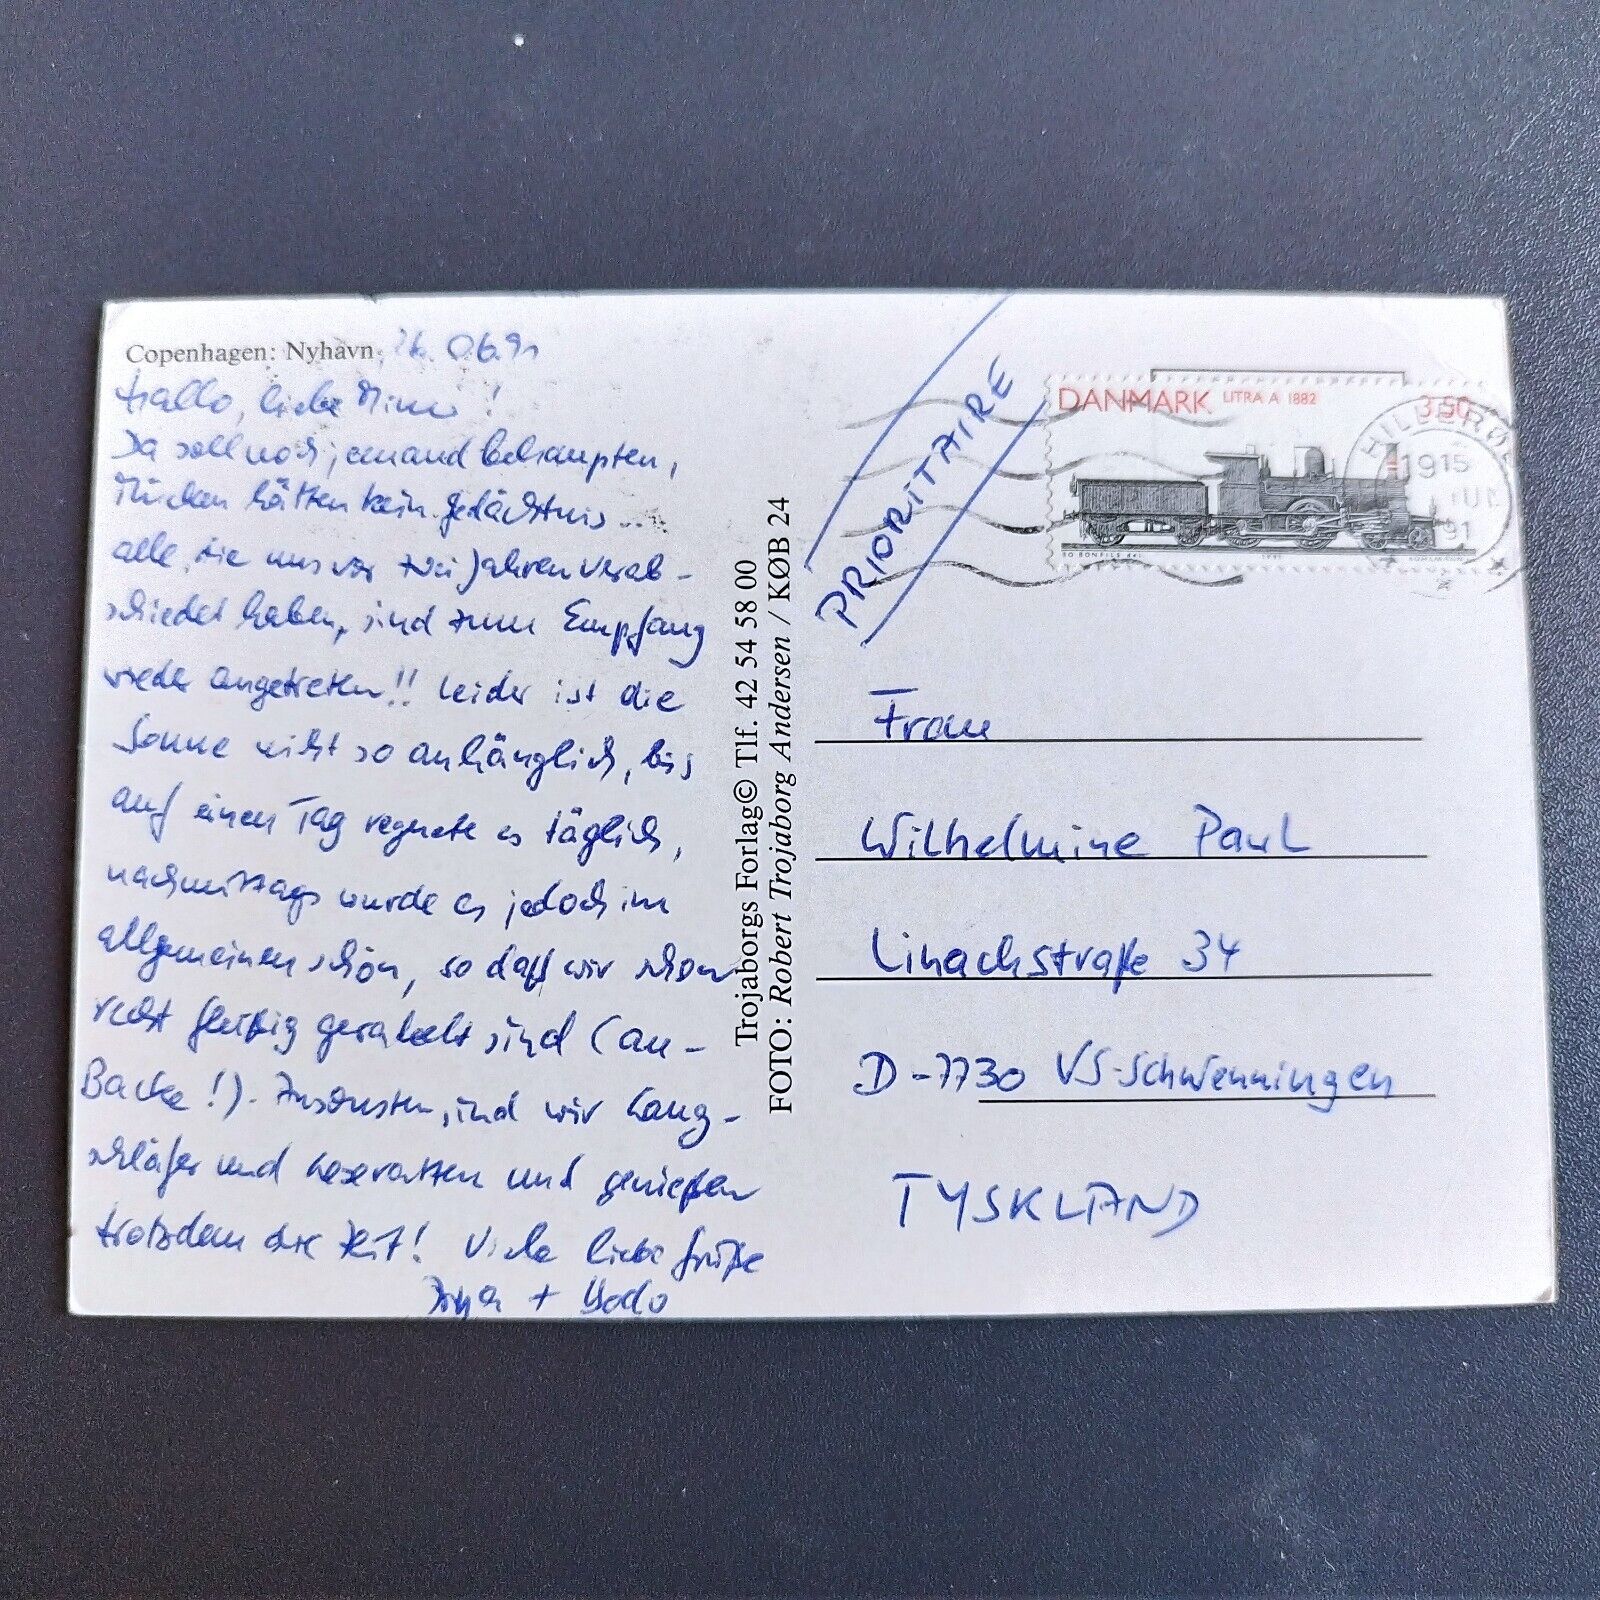 Copenhagen: Nyhavn, 26.06.91
Hallo, liebe Mine!
Da soll noch jemand behaupten,
Mücken hätten kein Gedächtnis...
alle, die uns vor zwei Jahren verab-
schiedet haben, sind zum Empfang
wieder angetreten!! Leider ist die
Sonne nicht so anhänglich, bis
auf einen Tag regnete es täglich,
nachmittags wurde es jedoch im
allgemeinen schön, so daß wir schon
recht fleißig geradelt sind (au-
Backe!). Ansonsten sind wir Lang-
schläfer und Leseratten und genießen
trotzdem die Zeit! Viele liebe Grüße
+ Bodo
Trojaborgs Forlag© Tlf. 42 54 58 00
FOTO: Robert Trojaborg Andersen / KØB 24
PRIORITAIRE
DANMARK LITRA A 1882 3.50
BO BONFILS del. 1991
HILLERØD
1915
91
Frau
Wilhelmine Paul
Linachstraße 34
D-7730 VS-Schwenningen
TYSKLAND